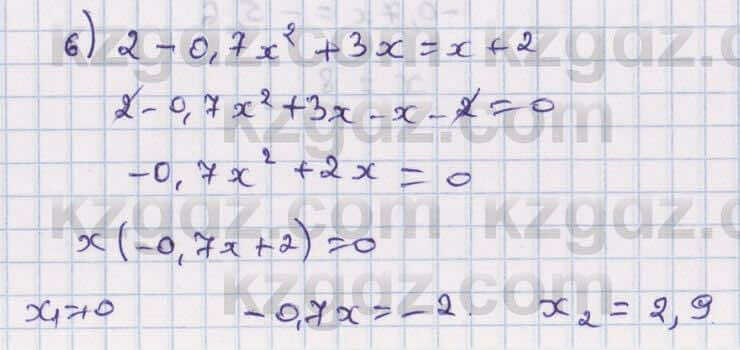 б) 2 - 0,7x² + 3x = x + 2
2 - 0,7x² + 3x - x - 2 = 0
-0,7x² + 2x = 0
x(-0,7x + 2) = 0
x₁ = 0   -0,7x = -2.   x₂ = 2,9
kzgdz.com kzgdz.com
kzgdz.com
kzgdz.com kzgdz.com
kzgdz.com